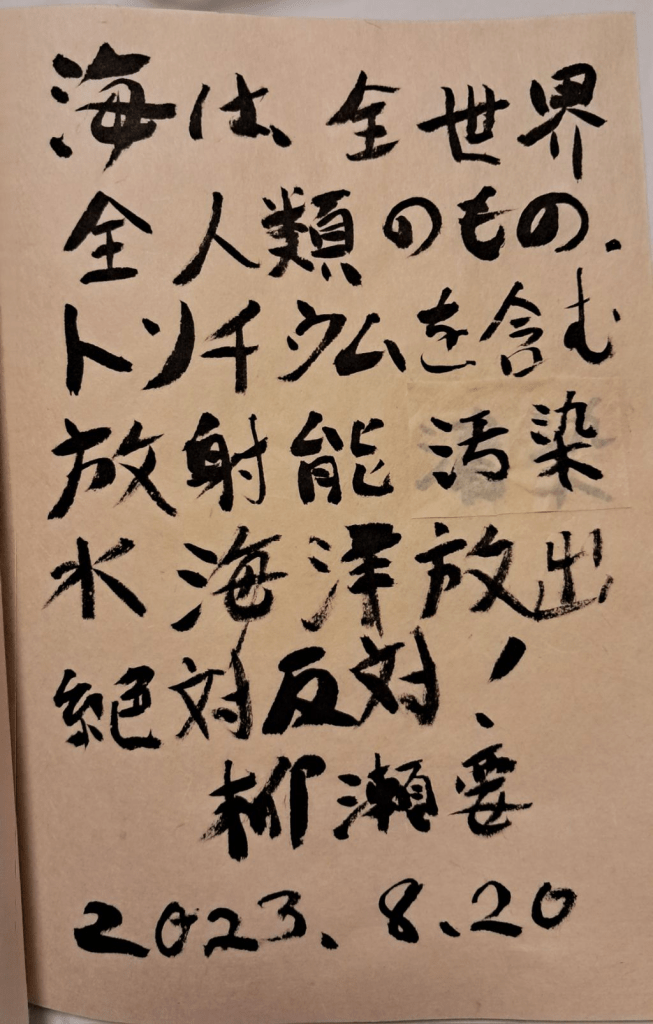 海は、全世界
全人類のもの.
トソチウムを含む
放射能汚染
水海洋放出
絶対反対!
柳瀬要
2023.8.20